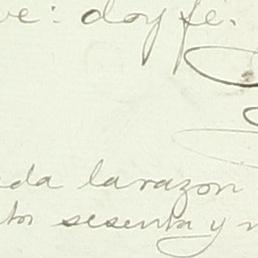 ve: doy fé.
eda la razon
to sesenta y n